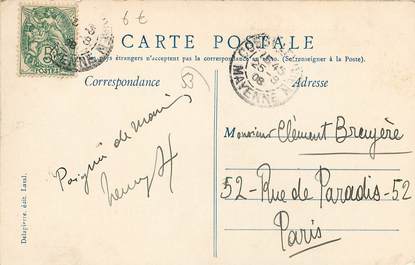 6 €
CARTE POSTALE
pays étrangers n'acceptent pas la correspondance au recto. (Se renseigner à la Poste).
Correspondance
53
Adresse
MAYENNE
08
Poignée de main
Henry
Monsieur Clément Bruyère
52 - Rue de Paradis - 52
Paris
Delagierre, édit. Laval.